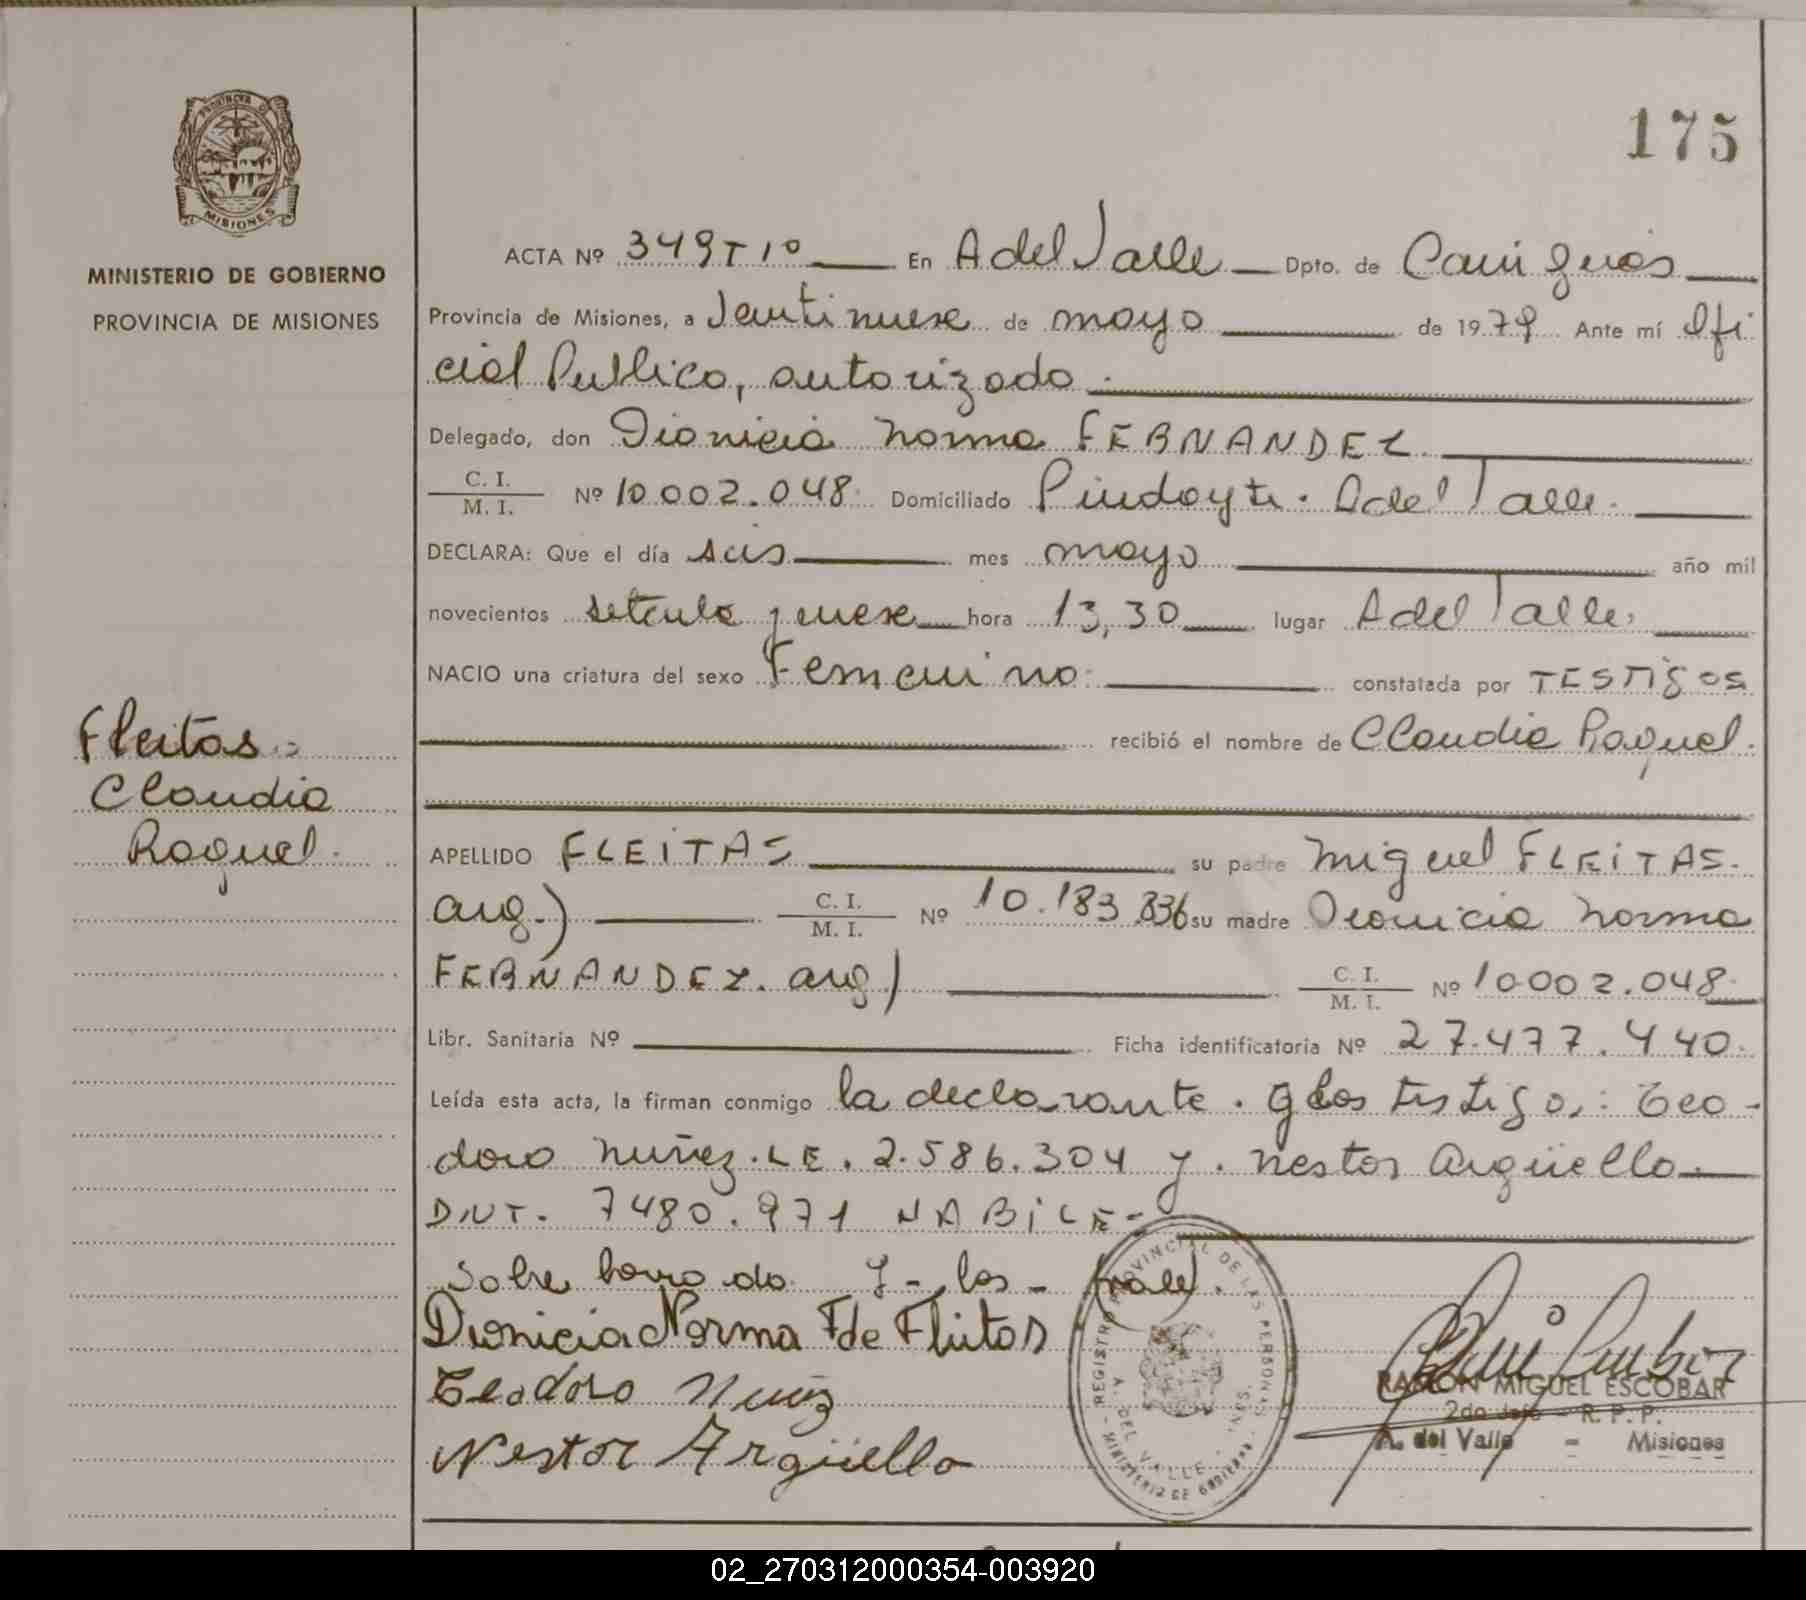 PROVINCIA DE
MISIONES
MINISTERIO DE GOBIERNO
PROVINCIA DE MISIONES
175
ACTA Nº 349 T 1º En A del Valle Dpto. de Cainguás
Provincia de Misiones, a veintinueve de mayo de 1979 Ante mí Ofi
cial Publico, autorizado.
Delegado, don Dionicia Norma FERNANDEZ
C. I.
M. I. Nº 10.002.048 Domiciliado Pindayti. A del Valle.
DECLARA: Que el día seis mes mayo año mil
novecientos setenta y nueve hora 13,30 lugar A del Valle.
NACIO una criatura del sexo Femenino constatada por TESTigos
recibió el nombre de Claudia Raquel.
Fleitas
Claudia
Raquel.
APELLIDO FLEiTAS su padre Miguel FLEiTAS.
arg.) C. I.
M. I. Nº 10.183.836 su madre Dionicia Norma
FERNANDEZ. arg) C. I.
M. I. Nº 10.002.048
Libr. Sanitaria Nº Ficha identificatoria Nº 27.477.440
Leída esta acta, la firman conmigo la declarante. y los testigos: Teo-
doro Nuñez. LE. 2.586.304 y. Nestor Argüello.
DNI. 7480.971 NABiLE-
Sobre borrado y - los - vale.
Dionicia Norma F de Fleitas
Teodoro Nuñz
Nestor Argüello
REGISTRO PROVINCIAL DE LAS PERSONAS
A. DEL VALLE - MNES.
MINISTERIO DE GOBIERNO
RAMON MIGUEL ESCOBAR
2do Jefe - R. P. P.
A. del Valle - Misiones
02_270312000354-003920